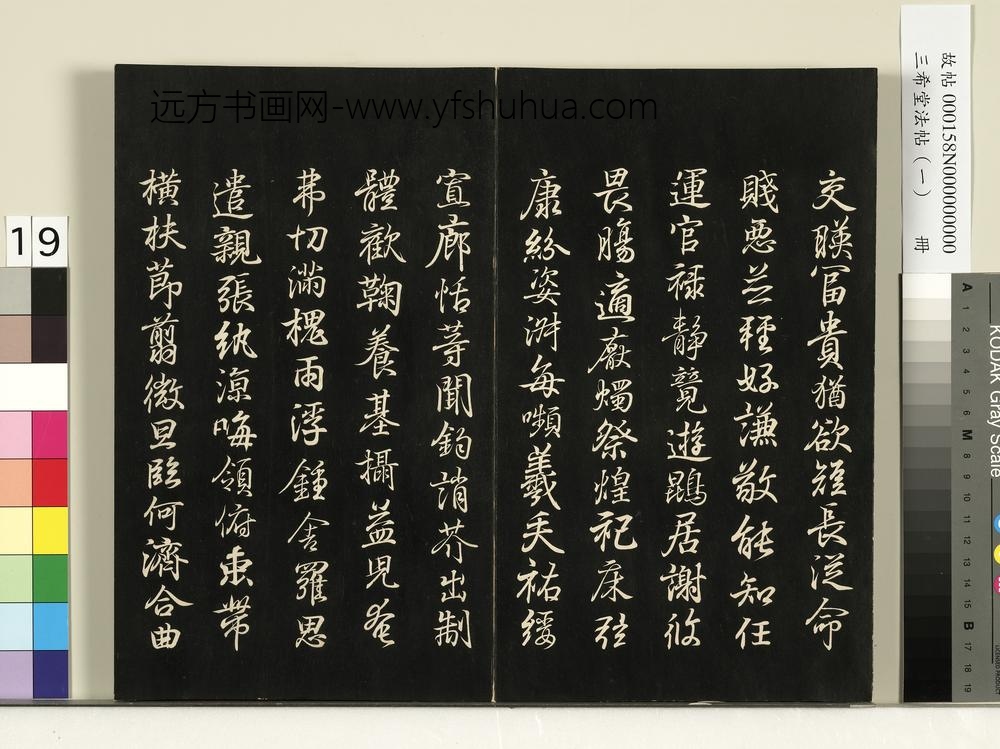 远方书画网-www.yfshuhua.com
故帖 000158N000000000
三希堂法帖（一） 冊
交暎富貴猶欲短長從命
賤惡並種好謙敬能知任
運官祿静覽遊鵾居謝攸
畏腸適厭燭祭煌祀床弦
康紛姿淑每嚬羲矢祐綏
宣廊恬等聞鈞誚芥出制
體歡鞠養基攝益皃奄
弗切滿槐雨浮鍾舍羅思
遣親張紈凉晦領俯束帶
橫扶莭翦微旦臨何濟合曲
19
KODAK Gray Scale
A 1 2 3 4 5 6 M 8 9 10 11 12 13 14 15 B 17 18 19